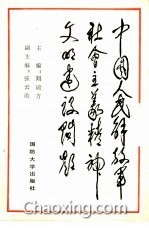 中国人民解放军
社会主义精神
文明建设问题
主编 刘瑞方
国防大学出版社
Chaoxing.com